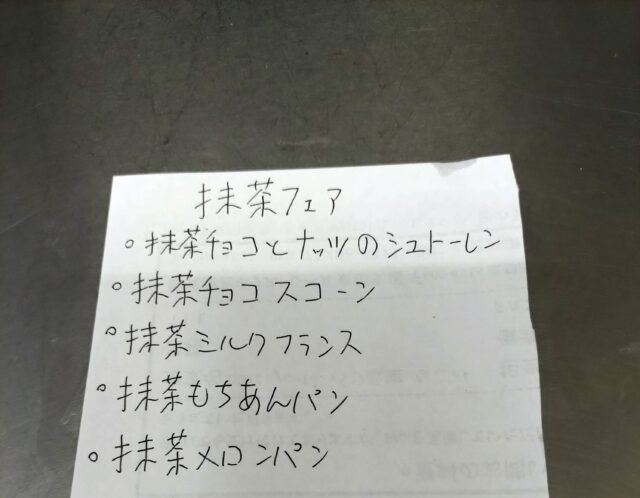 抹茶フェア
○抹茶チョコとナッツのシュトーレン
○抹茶チョコスコーン
○抹茶ミルクフランス
○抹茶もちあんパン
○抹茶メロンパン